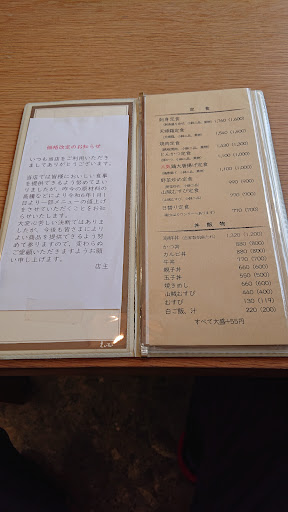 価格改定のお知らせ
いつも当店をご利用いただき
ましてありがとうございます。
当店では皆様においしい食事
を提供できるよう努めてまい
りましたが、昨今の原材料の
高騰などにより令和6年1月1
日より一部メニューの値上げ
をさせていただくことをお知
らせいたします。
大変に苦しい決断ではありま
したが、今後も皆さまにより
よい商品を提供できるよう努
めて参りますので、変わらぬ
ご愛顧いただきますようお願
い申し上げます。
店主
定食
刺身定食
天婦羅定食
焼肉定食
とんかつ定食
大唐揚げ定食
日替り定食
丼飯物
海鮮丼
かつ丼 880 (800)
カルビ丼 880 (800)
牛丼 770 (700)
親子丼 660 (600)
玉子丼 550 (500)
焼きめし 660 (600)
山賊むすび 440 (400)
むすび 130 (119)
白ご飯、汁 220 (200)
すべて大盛+55円